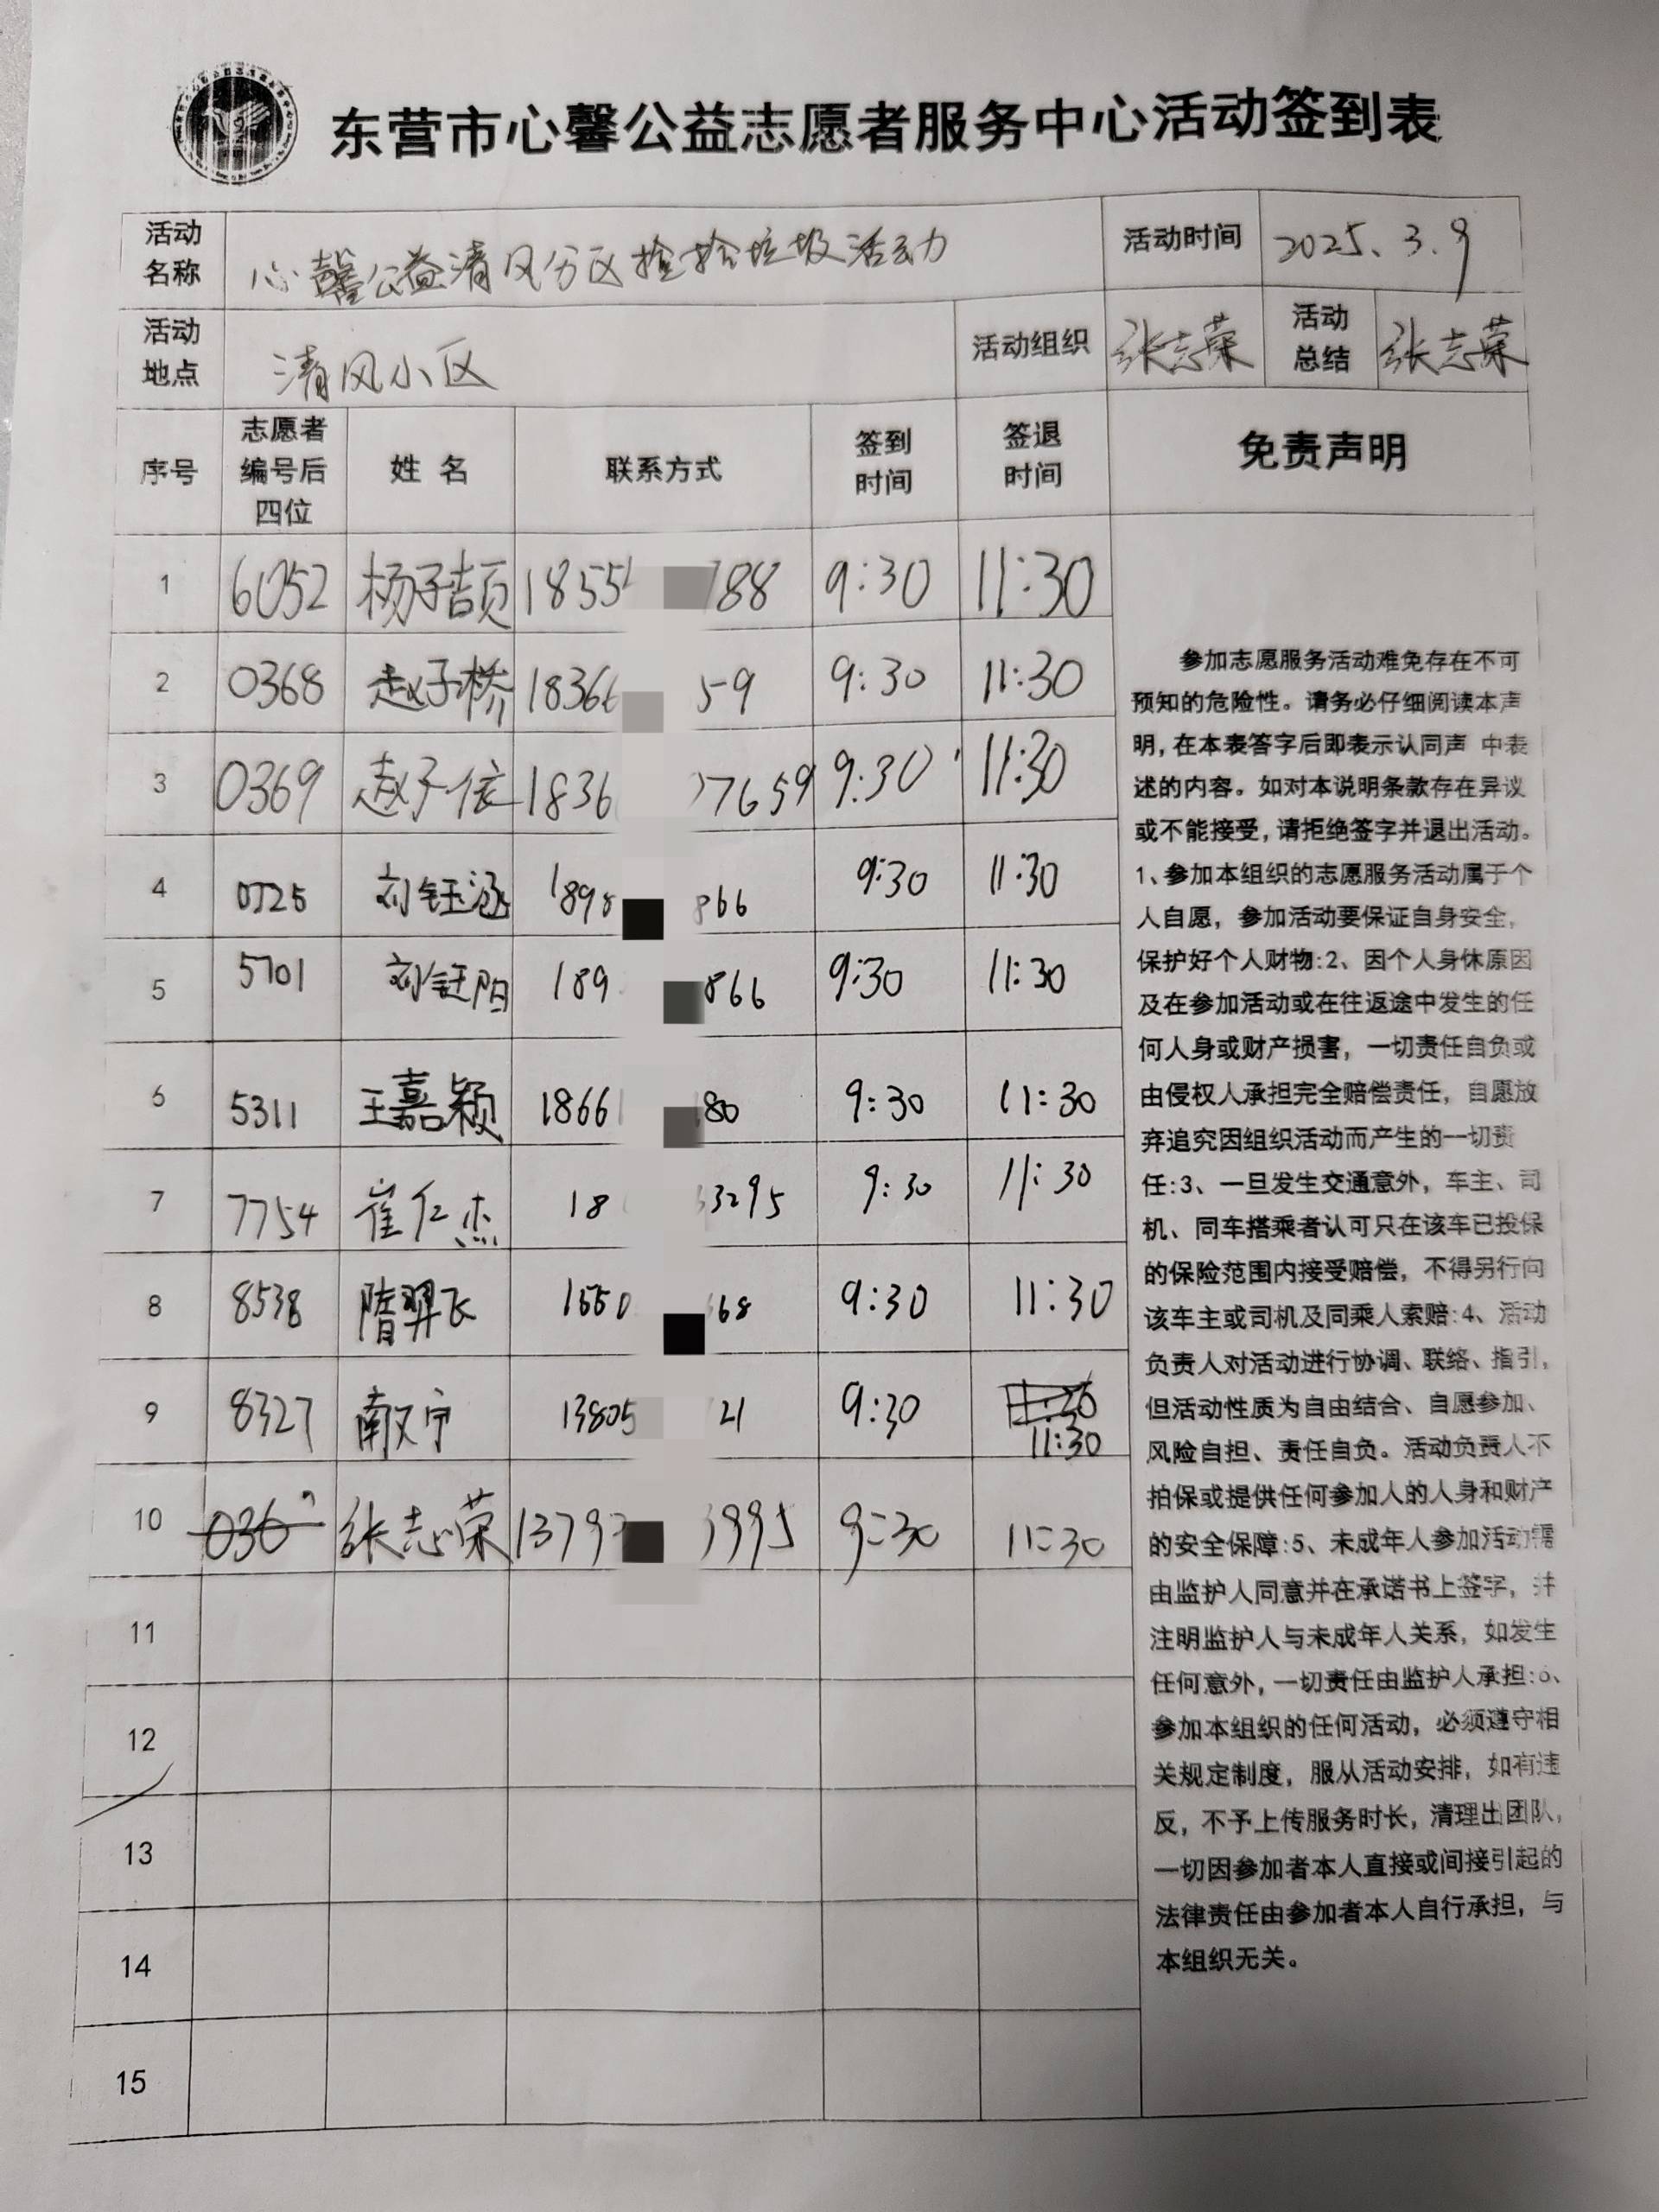 东营市心馨公益志愿者服务中心活动签到表
活动名称 心馨公益清风分区捡拾垃圾活动 活动时间 2025.3.9
活动地点 清风小区 活动组织 张志荣 活动总结 张志荣
序号 志愿者编号后四位 姓名 联系方式 签到时间 签退时间 免责声明
1 6052 杨子颉 1855 788 9:30 11:30
2 0368 赵子桥 1836 59 9:30 11:30
3 0369 赵子依 1836 77659 9:30 11:30
4 0725 刘钰涵 189 866 9:30 11:30
5 5701 刘钰阳 189 866 9:30 11:30
6 5311 王嘉颖 1866 80 9:30 11:30
7 7754 崔仁杰 18 3295 9:30 11:30
8 8538 隋羿飞 1550 68 9:30 11:30
9 8327 南又宁 13805 21 9:30 11:30
10 036 张志荣 1379 995 9:30 11:30
11
12
13
14
15
参加志愿服务活动难免存在不可
预知的危险性。请务必仔细阅读本声
明,在本表答字后即表示认同声 中表
述的内容。如对本说明条款存在异议
或不能接受,请拒绝签字并退出活动。
1、参加本组织的志愿服务活动属于个
人自愿，参加活动要保证自身安全,
保护好个人财物:2、因个人身休原因
及在参加活动或在往返途中发生的任
何人身或财产损害，一切责任自负或
由侵权人承担完全赔偿责任，自愿放
弃追究因组织活动而产生的一切责
任:3、一旦发生交通意外，车主、司
机、同车搭乘者认可只在该车已投保
的保险范围内接受赔偿，不得另行向
该车主或司机及同乘人索赔:4、活动
负责人对活动进行协调、联络、指引,
但活动性质为自由结合、自愿参加、
风险自担、责任自负。活动负责人不
拍保或提供任何参加人的人身和财产
的安全保障:5、未成年人参加活动需
由监护人同意并在承诺书上签字，并
注明监护人与未成年人关系，如发生
任何意外,一切责任由监护人承担:6、
参加本组织的任何活动，必须遵守相
关规定制度，服从活动安排，如有违
反，不予上传服务时长，清理出团队,
一切因参加者本人直接或间接引起的
法律责任由参加者本人自行承担，与
本组织无关。